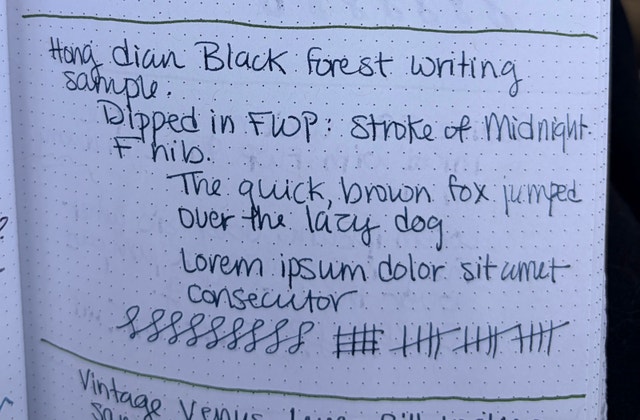 Hong dian Black Forest writing
sample.
Dipped in FWP: Stroke of Midnight.
F nib.
The quick, brown fox jumped
over the lazy dog
Lorem ipsum dolor sit amet
consecutor
Vintage Venus